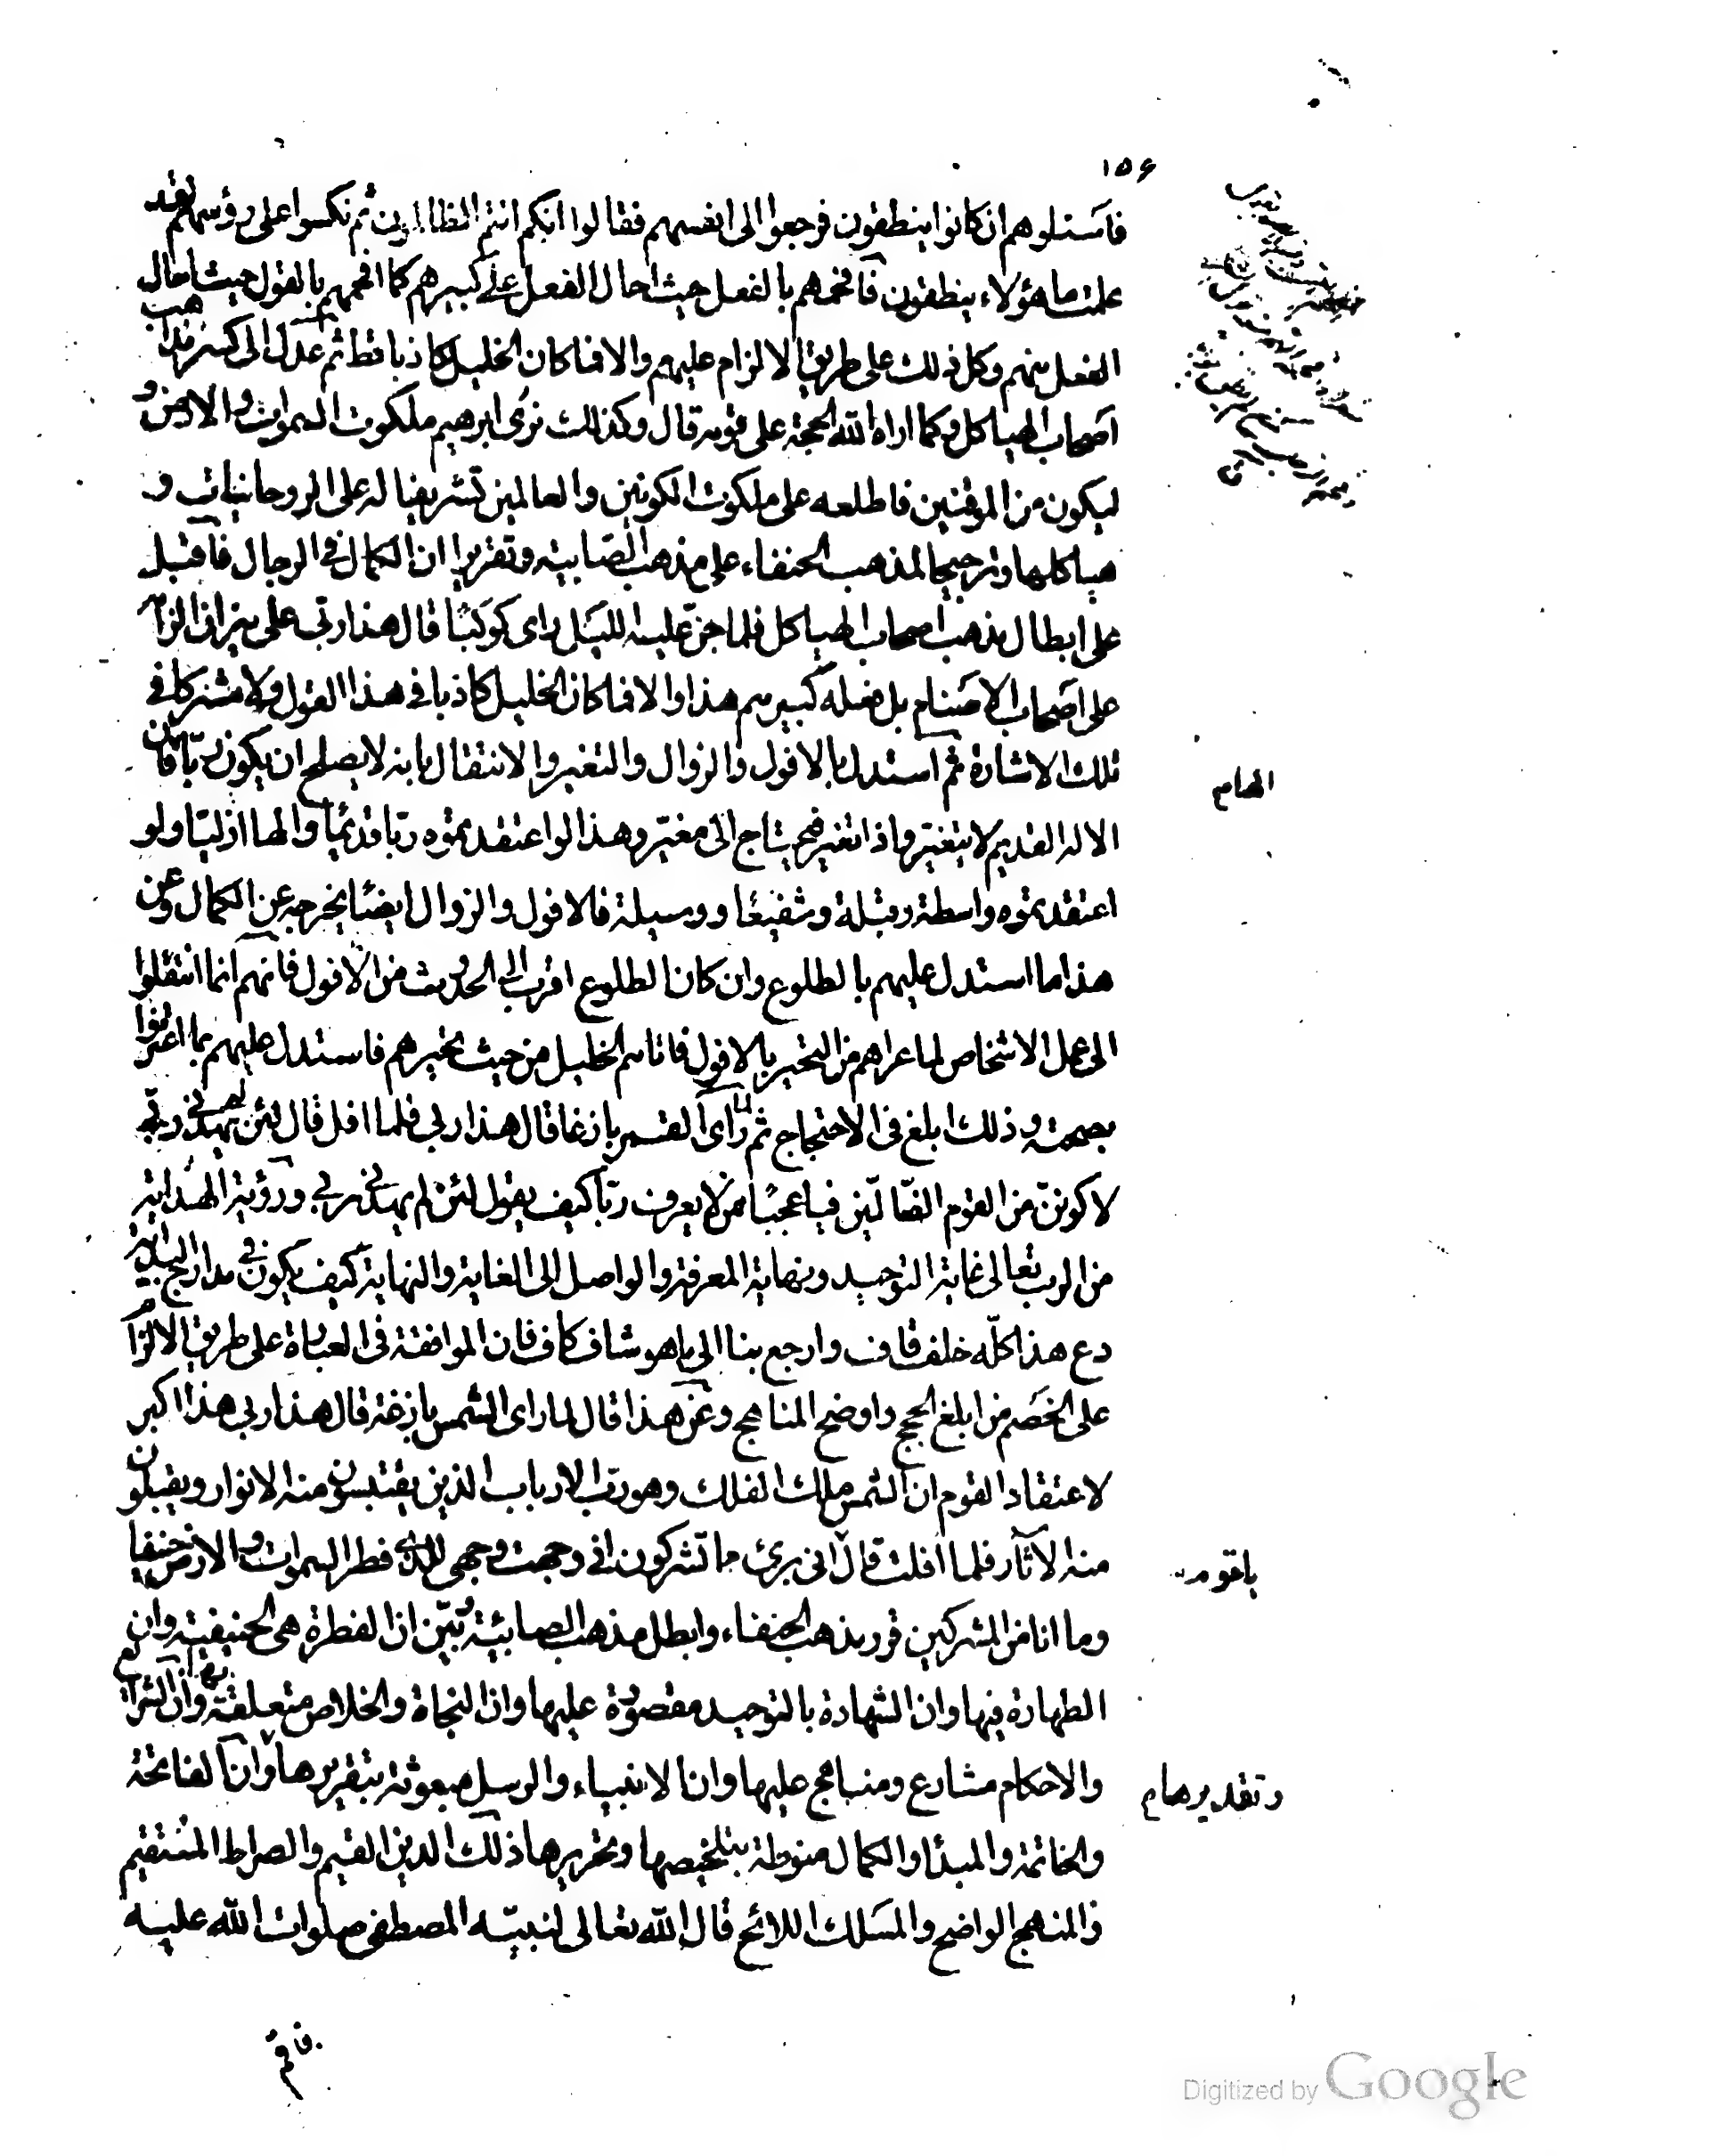 ١٥۶
فاسئلوهم ان كانوا ينطقون فرجعوا الى انفسهم فقالوا انكم انتم الظالمون ثم نكسوا على رؤسهم لقد
علمت ما هؤلاء ينطقون فافحمهم بالفعل حيث احال الفعل على كبيرهم كما افحمهم بالقول حيث احال
الفعل منهم وكل ذلك على طريق الالزام عليهم والا فما كان الخليل كاذبا قط ثم عدل الى كسر مذاهب
اصحاب الهياكل وكما اراه الله الحجة على قومه قال وكذلك نرى ابرهيم ملكوت السموات والارض و
ليكون من الموقنين فاطلعه على ملكوت الكونين والعالمين تشريفا له على الروحانيات و
هياكلها وترجيحا لمذهب الحنفاء على مذهب الصابية وتقريرا ان الكمال في الرجال فاقبل
على ابطال مذهب اصحاب الهياكل فلما جن عليه الليل راى كوكبا قال هذا ربي على ميزان الزامه
على اصحاب الاصنام بل فعله كبيرهم هذا والا فما كان الخليل كاذبا في هذا القول ولا مشركا في
تلك الاشارة ثم استدل بالافول والزوال والتغير والانتقال بانه لا يصلح ان يكون ربا فان
الاله القديم لا يتغير واذا تغير فيحتاج الى مغير وهذا لو اعتقدتموه ربا قديما والها ازليا ولو
اعتقدتموه واسطة وقبلة وشفيعا ووسيلة فالافول والزوال ايضا يخرجه عن الكمال وعن
هذا ما استدل عليهم بالطلوع وان كان الطلوع اقرب الى الحدوث من الافول فانهم انما انتقلوا
الى عمل الاشخاص لما عراهم من التحير بالافول فاتاهم الخليل من حيث تحيرهم فاستدل عليهم بما اعترفوا
بصحته وذلك ابلغ في الاحتجاج ثم لما راى القمر بازغا قال هذا ربي فلما افل قال لئن لم يهدني ربي
لاكونن من القوم الضالين فيا عجبا ممن لا يعرف ربا كيف يقول لئن لم يهدني ربي ورؤية الهداية
من الرب تعالى غاية التوحيد ونهاية المعرفة والواصل الى الغاية والنهاية كيف يكون في مدارج البداية
دع هذا كله خلف قاف وارجع بنا الى ما هو شاف كاف فان الموافقة في العبارة على طريق الالزام
على الخصم من ابلغ الحجج واوضح المناهج وعن هذا قال لما راى الشمس بازغة قال هذا ربي هذا اكبر
لاعتقاد القوم ان الشمس ملك الفلك وهو رب الارباب الذين يقتبسون منه الانوار ويقبلون
منه الآثار فلما افلت قال اني برئ مما تشركون اني وجهت وجهي للذي فطر السموات والارض حنيفا
وما انا من المشركين قرر مذهب الحنفاء وابطل مذهب الصابئية وبين ان الفطرة هي الحنيفية وان
الطهارة فيها وان الشهادة بالتوحيد مقصورة عليها وان النجاة والخلاص متعلقة بها وان الشرائع
والاحكام مشارع ومناهج عليها وان الانبياء والرسل مبعوثة بتقريرها وان الفاتحة
والخاتمة والمبدا والكمال منوطة بتلخيصها وتحريرها ذلك الدين القيم والصراط المستقيم
والمنهج الواضح والمسلك اللائح قال الله تعالى لنبيه المصطفى صلوات الله عليه
الهام
يا قوم
وتقديرهام
فاقم
Digitized by Google